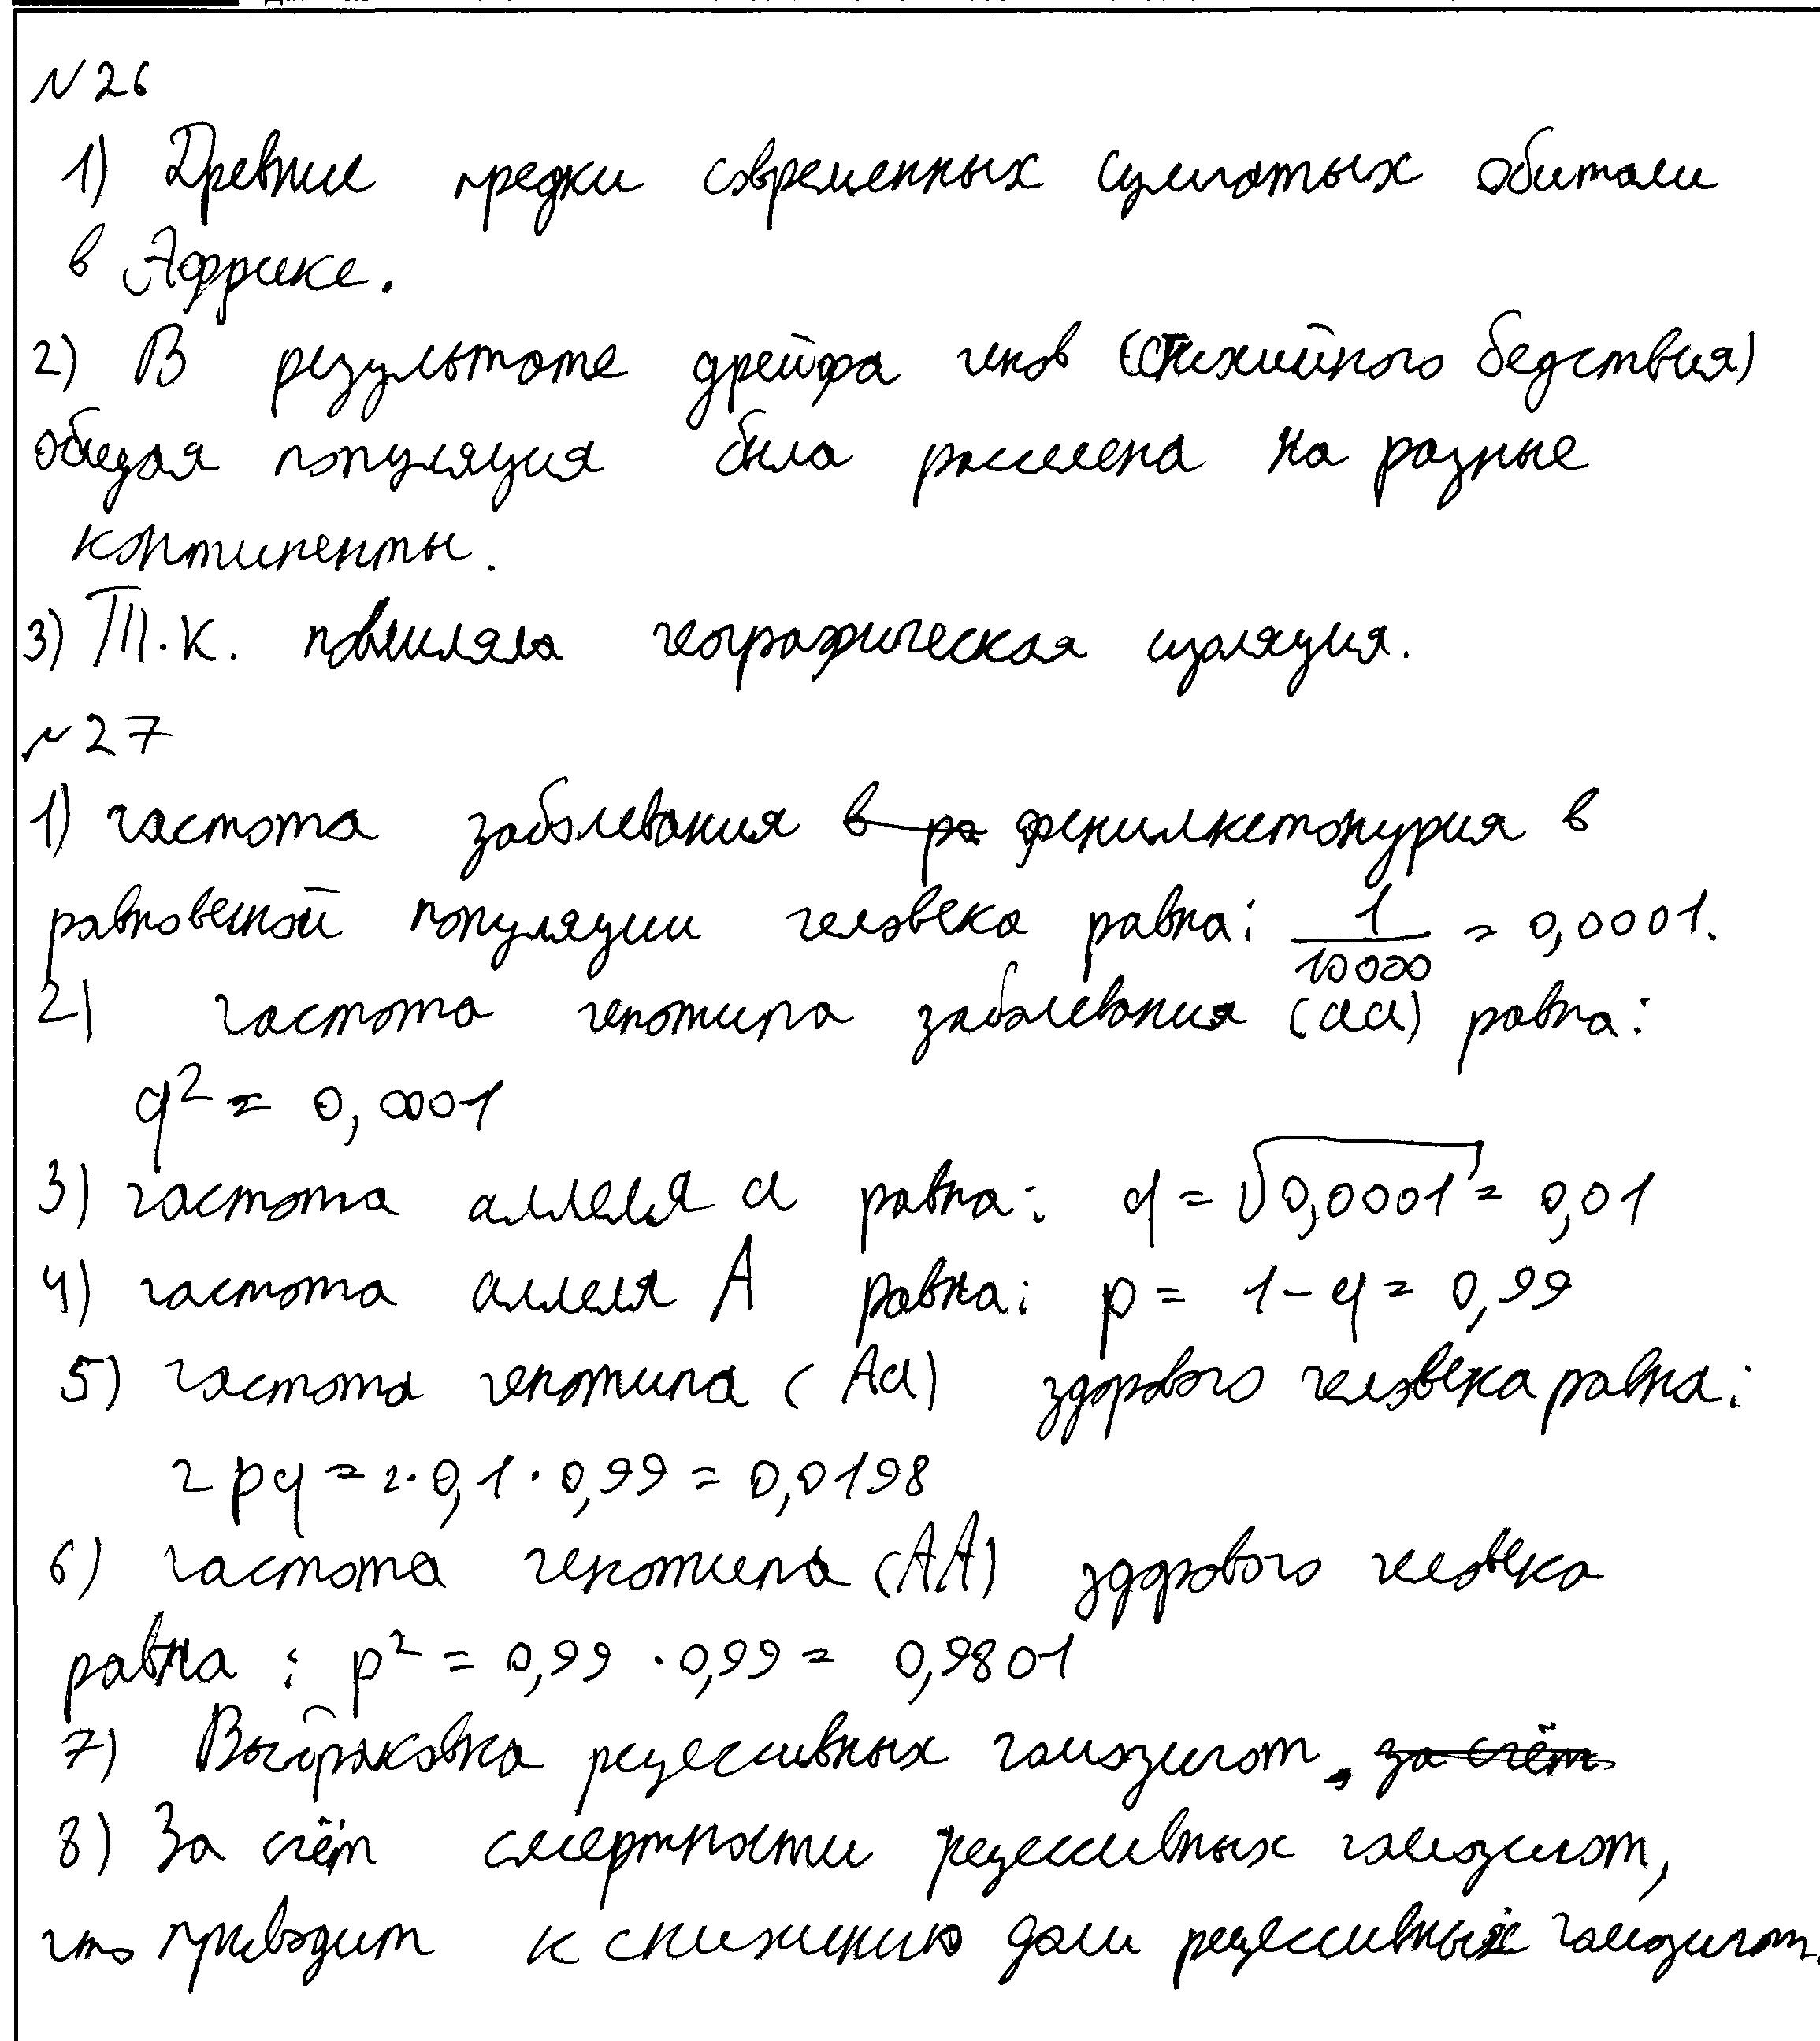 №26
1) Древние предки современных сумчатых обитали
в Африке.
2) В результате дрейфа генов (стихийного бедствия)
общая популяция была расселена на разные
континенты.
3) Т.к. повлияла географическая изоляция.
№27
1) частота заболевания в ра фенилкетонурия в
равновесной популяции человека равна: 1/10000 = 0,0001.
2) частота генотипа заболевания (aa) равна:
q² = 0,0001
3) частота аллеля a равна: q = √0,0001 = 0,01
4) частота аллеля A равна: p = 1 - q = 0,99
5) частота генотипа (Aa) здорового человека равна:
2pq = 2·0,1·0,99 = 0,0198
6) частота генотипа (AA) здорового человека
равна: p² = 0,99 · 0,99 = 0,9801
7) Выбраковка рецессивных гомозигот, за счёт
8) За счёт смертности рецессивных гомозигот,
что приводит к снижению доли рецессивных гомозигот.